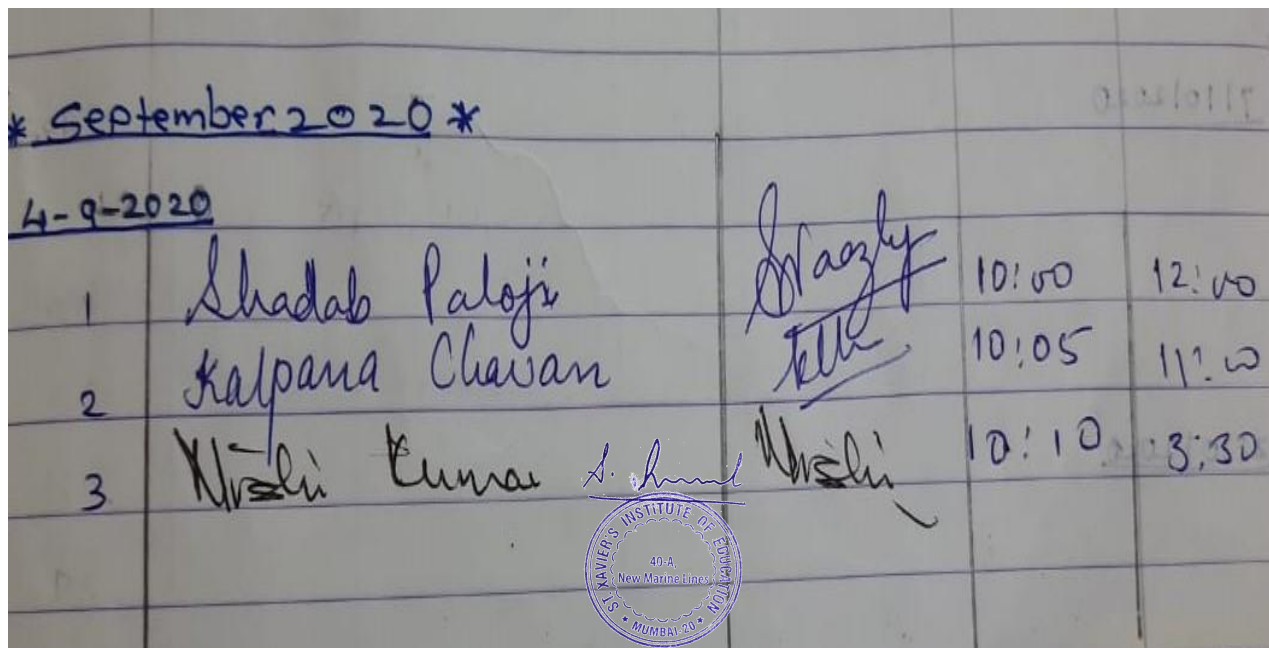 * September 2020 *
4-9-2020
1 Shadab Paloji 10:00 12:00
2 Kalpana Chavan 10:05 11:00
3 Kumar 10:10 3:30
ST. XAVIER'S INSTITUTE OF EDUCATION
40-A,
New Marine Lines
* MUMBAI-20 *